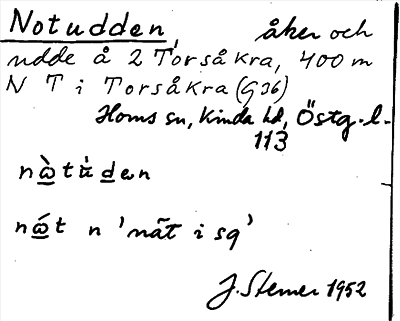 Notudden, åker och
udde å 2 Torsåkra, 400 m
N T i Torsåkra (G36)
Horns sn, Kinda hd, Östg. l.
113
nὼ̲tu̇̀d̲en
nώ̲t n 'nät i sq'
J. Stemer 1952